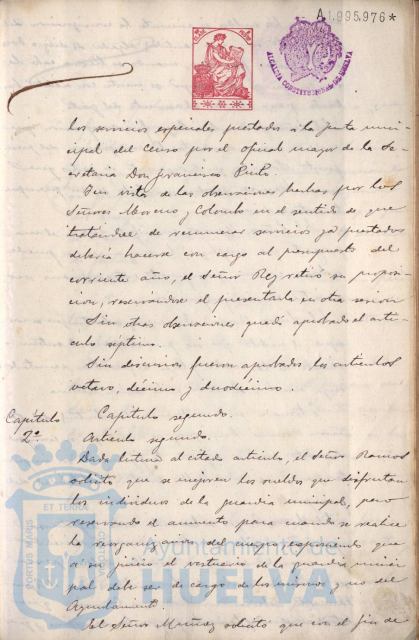 A1.995.976*
ALCALDIA CONSTITUCIONAL DE HUELVA
los servicios especiales prestados á la Junta muni-
cipal del Censo por el oficial mayor de la Se-
cretaria Don Francisco Pinto.
En vista de las observaciones hechas por los
Señores Moreno y Colombo en el sentido de que
tratándose de remunerar servicios ya prestados
debería hacerse con cargo al presupuesto del
corriente año, el Señor Rey retiró su proposi-
cion, reservandose el presentarla en otra sesion
Sin otras observaciones quedó aprobado el arti-
culo septimo.
Sin discusion fueron aprobados los articulos
octavo, décimo y duodécimo.
Capítulo 2º
Capítulo segundo.
Artículo segundo.
Dada lectura al citado artículo, el Señor Ramos
solicitó que se mejoren los sueldos que disfrutan
los individuos de la guardia municipal, pero
reservando el aumento para cuando se realice
la reorganizacion del cuerpo exponiendo que
á su juicio el vestuario de la guardia munici-
pal debe ser de cargo de los mismos y no del
Ayuntamiento.
El Señor Muñoz solicitó que con el fin de
PORTUS MARIS
ET TERRAE
CUSTODIA
Ayuntamiento de
HUELVA